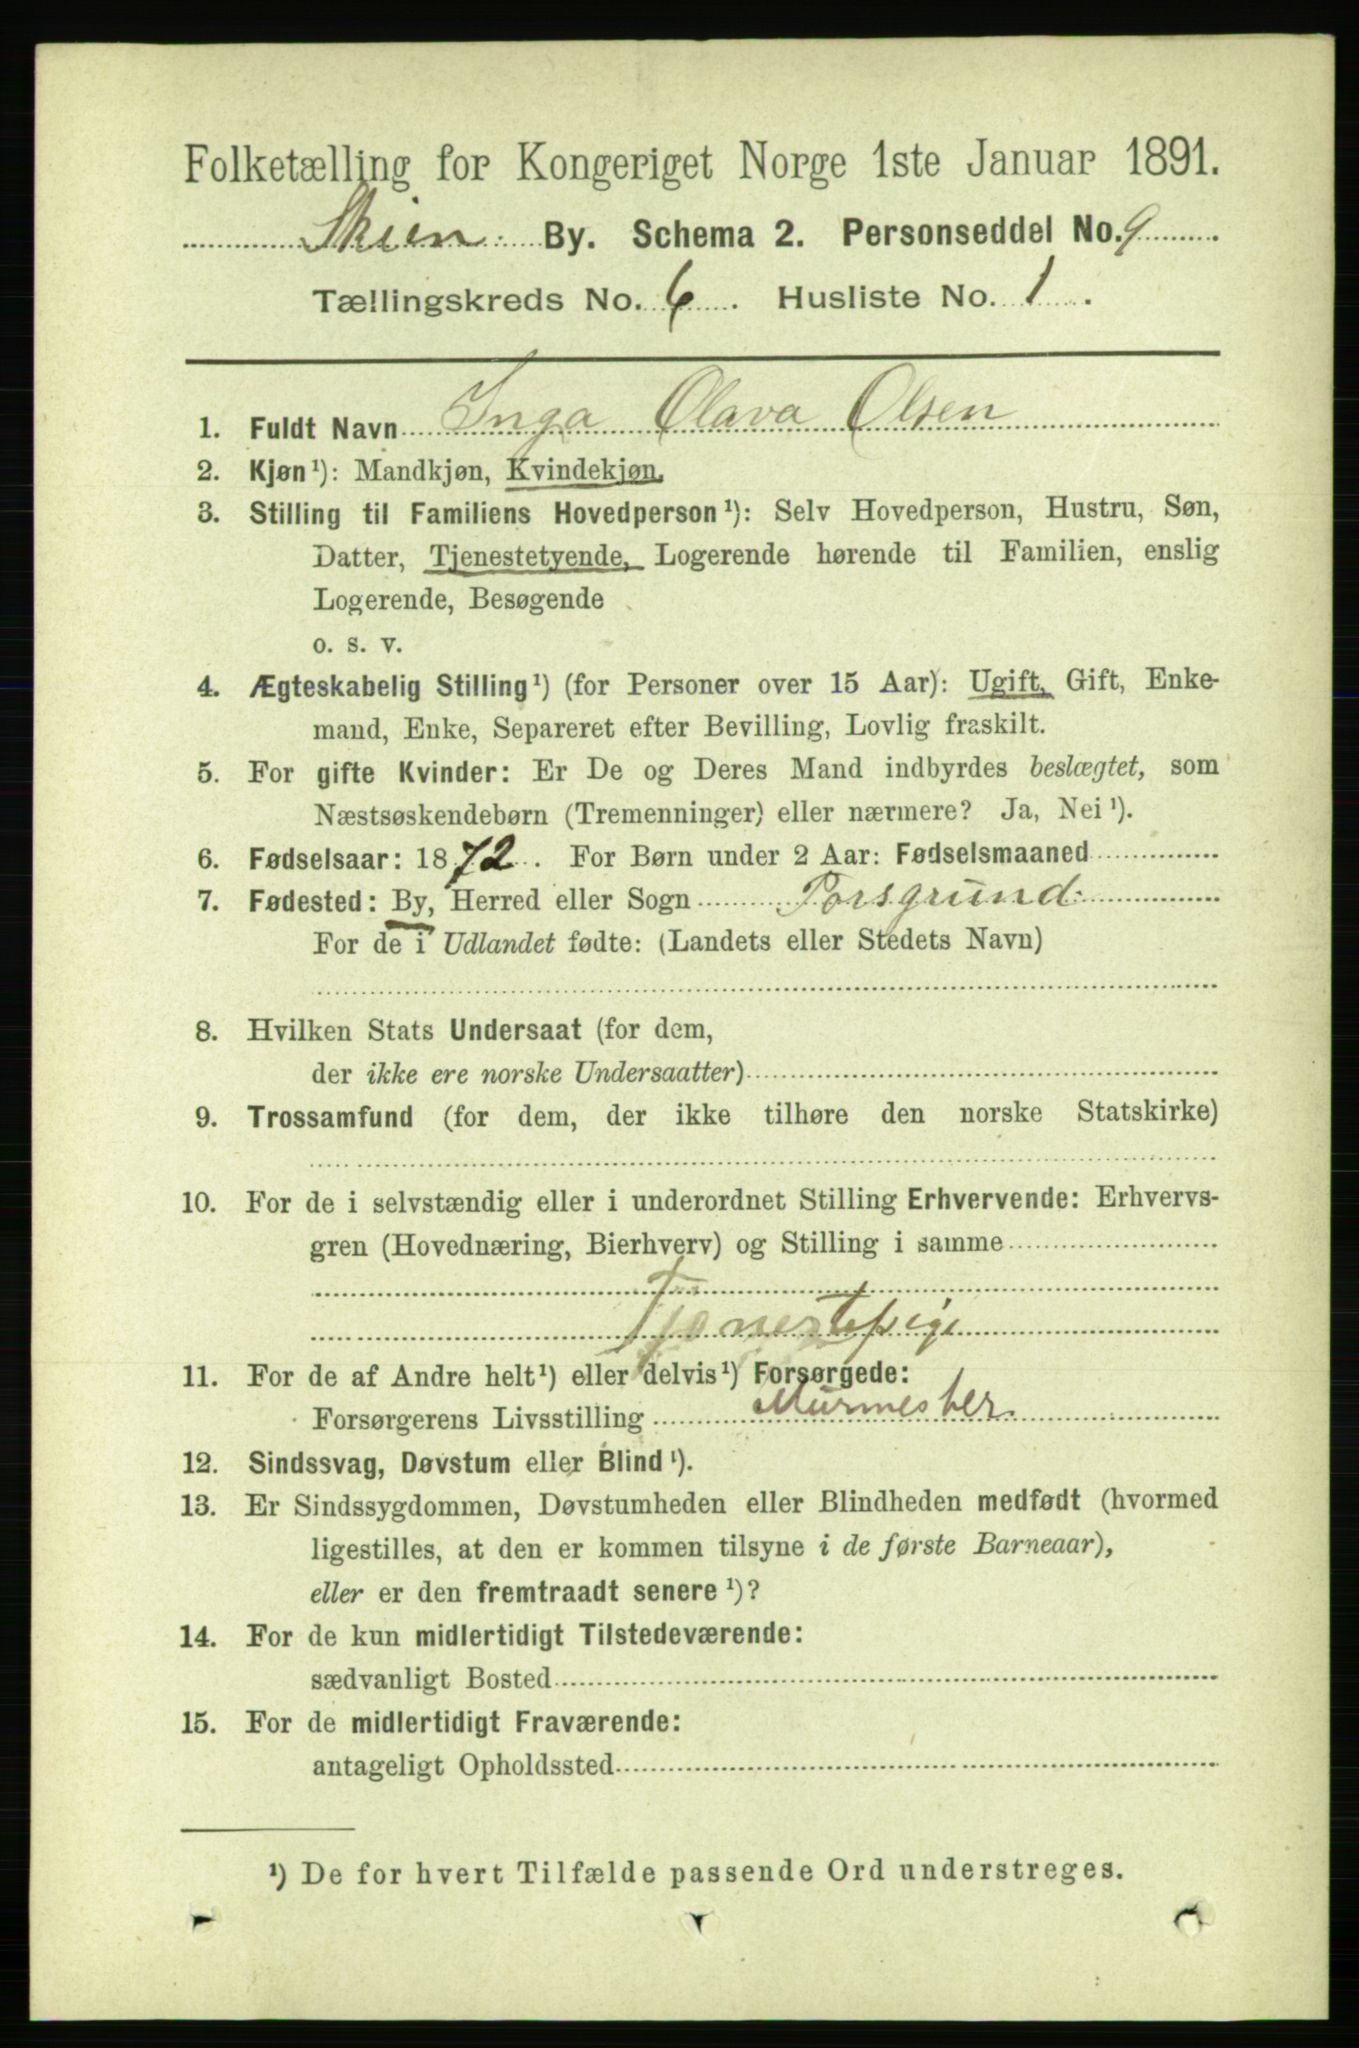 Folketælling for Kongeriget Norge 1ste Januar 1891.
Skien By. Schema 2. Personseddel No. 9
Tællingskreds No. 6. Husliste No. 1.
1. Fuldt Navn Inga Olava Olsen
2. Kjøn¹): Mandkjøn, Kvindekjøn.
3. Stilling til Familiens Hovedperson¹): Selv Hovedperson, Hustru, Søn,
Datter, Tjenestetyende, Logerende hørende til Familien, enslig
Logerende, Besøgende
o. s. v.
4. Ægteskabelig Stilling¹) (for Personer over 15 Aar): Ugift, Gift, Enke-
mand, Enke, Separeret efter Bevilling, Lovlig fraskilt.
5. For gifte Kvinder: Er De og Deres Mand indbyrdes beslægtet, som
Næstsøskendebørn (Tremenninger) eller nærmere? Ja, Nei¹).
6. Fødselsaar: 1872. For Børn under 2 Aar: Fødselsmaaned
7. Fødested: By, Herred eller Sogn Porsgrund
For de i Udlandet fødte: (Landets eller Stedets Navn)
8. Hvilken Stats Undersaat (for dem,
der ikke ere norske Undersaatter)
9. Trossamfund (for dem, der ikke tilhøre den norske Statskirke)
10. For de i selvstændig eller i underordnet Stilling Erhvervende: Erhvervs-
gren (Hovednæring, Bierhverv) og Stilling i samme
Tjenestepige
11. For de af Andre helt¹) eller delvis¹) Forsørgede:
Forsørgerens Livsstilling Murmester.
12. Sindssvag, Døvstum eller Blind¹).
13. Er Sindssygdommen, Døvstumheden eller Blindheden medfødt (hvormed
ligestilles, at den er kommen tilsyne i de første Barneaar),
eller er den fremtraadt senere¹)?
14. For de kun midlertidigt Tilstedeværende:
sædvanligt Bosted
15. For de midlertidigt Fraværende:
antageligt Opholdssted
¹) De for hvert Tilfælde passende Ord understreges.